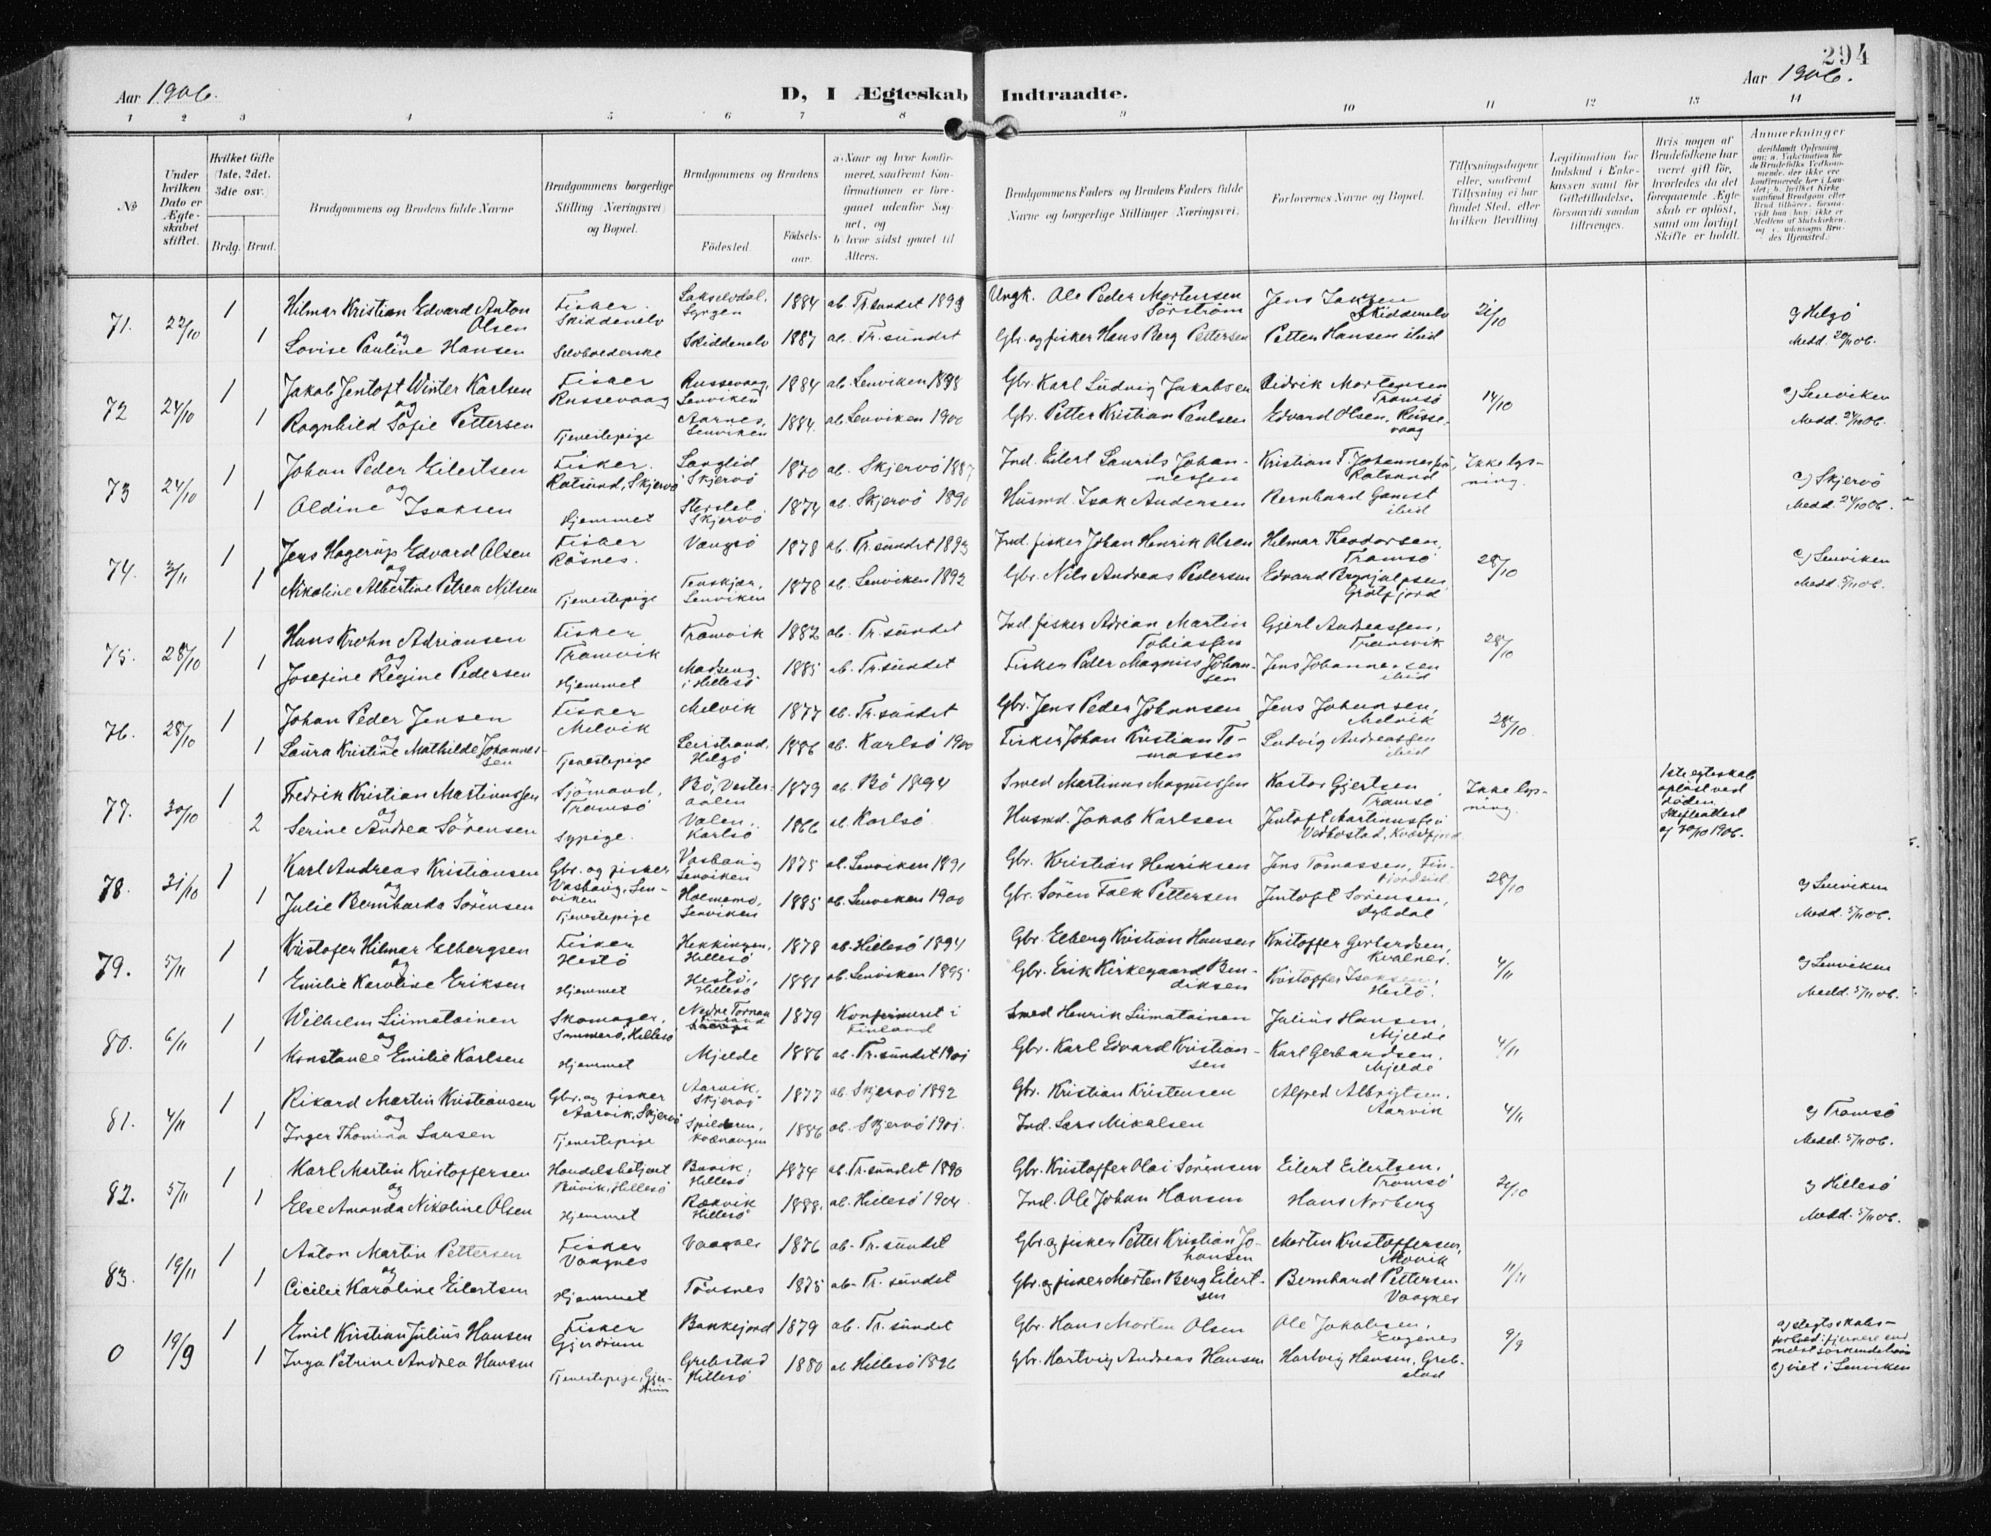 294
Aar 1906.
D, I Ægteskab Indtraadte.
Aar 1906.
1 2 3 4 5 6 7 8 9 10 11 12 13 14
No
Under hvilken Dato er Ægteskabet stiftet.
Hvilket Gifte (1ste, 2det. 3die osv.)
Brdg. Brud.
Brudgommens og Brudens fulde Navne
Brudgommens borgerlige Stilling (Næringsvei) og Bopæl.
Brudgommens og Brudens
Födested.
Födsels-aar.
a. Naar og hvor konfirmeret, saafremt Konfirmationen er foregaaet udenfor Sognet, og
b. hvor sidst gaaet til Alters.
Brudgommens Faders og Brudens Faders fulde Navne og borgerlige Stillinger (Næringsvei).
Forlovernes Navne og Bopæl.
Tillysningsdagene eller, saafremt Tillysning ei har fundet Sted, efter hvilken Bevilling
Legitimation for Indskud i Enkekassen samt for Giftetilladelse, forsaavidt saadan tiltrænges.
Hvis nogen af Brudefolkene har været gift før, hvorledes da det foregaaende Ægteskab er opløst, samt om lovligt Skifte er holdt.
Anmærkninger
71. 22/10 1 Hilmar Kristian Edvard Anton Olsen Fisker. Skiddenelv 1884 ab. Tr.sundet 1899 Ungk. Ole Peder Mortensen Sörström Jens Isaksen Skiddenelv 21/10 c) Helgö
og
1 Lovise Pauline Hansen Skiddenelv 1887 ab. Tr.sundet Gbr. og fisker Hans Berg Pettersen Petter Hansen ibid
72 24/10 1 Jakob Jentoft Winter Karlsen Fisker Russevaag Russevaag, Lenviken 1884 ab. Lenviken 1898 Gbr. Karl Ludvig Jakobsen Didrik Mortensen Tromsö 14/10 c) Lenviken
og
1 Ragnhild Sofie Pettersen Tjenestepige Aarnes, Lenviken 1884. ab Lenviken 1900 Gbr. Petter Kristian Paulsen Edvard Olsen, Russevaag Medd. 24/10 06.
73 24/10 1 Johan Peder Eilertsen Fisker. Rotsund, Skjervö Langlid Skjervö 1870 ab. Skjervö 1887 Ind. Eilert Laurits Johannessen Kristian T. Johannessen, Rotsund Ikke lysning. c) Skjervö
og
1 Aldine Isaksen Hjemmet Skjervö 1874 ab. Skjervö 1890 Husmd. Isak Andersen Bernhard Gamst ibid Medd. 24/10 06.
74. 3/11 1 Jens Hagerup Edvard Olsen Fisker Røsnes. Vengsö 1878 ab. Tr.sundet 1893 Ind. fisker Johan Henrik Olsen Hilmar Theodorsen, Tromsö 28/10 c) Lenviken
og
1 Nikoline Albertine Petrea Nilsen Tjenestepige Tenskjær, Lenviken 1878 ab. Lenviken 1892 Gbr. Nils Andreas Pedersen Edvard Brynjulfsen, Grøtfjord Medd. 5/11 06.
75. 28/10 1 Hans Krohn Adriansen Fisker Tromvik Tromvik 1882 ab. Tr.sundet Ind. fisker Adrian Martin Tobiassen Gjert Andreassen, Tromvik 28/10
og
1 Josefine Regine Pedersen Hjemmet Madseng i Hillesö 1885 ab. Tr.sundet Fisker Peder Magnus Johansen Jens Johannessen ibid
76. 28/10 1 Johan Peder Jensen Fisker Melvik Melvik 1877 ab. Tr.sundet Gbr. Jens Peder Johansen Jens Johansen, Melvik 28/10
og
1 Laura Kristine Mathilde Johannessen Tjenestepige Leirstrand, Helgö 1886 ab. Karlsö 1900 Fisker Johan Kristian Tomassen Ludvig Andreassen ibid
77. 30/10 1 Fredrik Kristian Martinussen Sjömand, Tromsö Bö, Vesteraalen 1879 ab. Bö 1894 Smed Martinus Magnussen Kastor Gjertsen, Tromsö Ikke lysning. 1ste egteskab opløst ved döden.
og
2 Serine Andrea Sörensen Sypige. Valen, Karlsö 1866 ab. Karlsö Husmd. Jakob Karlsen Jentoft Martinussen 30/10 1906.
78. 31/10 1 Karl Andreas Kristiansen Gbr. og fisker Lenviken Lenviken 1875 ab. Lenviken 1891 Gbr. Kristian Henriksen Jens Tomassen, 28/10 c) Lenviken
og
1 Julie Bernharda Sörensen Tjenestepige Lenviken 1885 ab. Lenviken 1900 Gbr. Sören Falk Pettersen Jentoft Sörensen, Medd. 5/11 06.
79. 5/11 1 Kristofer Hilmar Elbergsen Fisker Hestö Hekkingen, Hillesö 1878 ab. Hillesö 1894 Gbr. Elberg Kristian Hansen Kristoffer Gerhardsen, Kvalnes. 4/11 c) Lenviken
og
1 Emilie Karoline Eriksen Hjemmet Hestö, Hillesö 1881 ab. Lenviken 1895 Gbr. Erik Kirkegaard Bendiksen Kristoffer Isaksen, Hestö. Medd. 5/11 06.
80. 6/11 1 Wilhelm Siimatainen Skomager, Sommerö, Hillesö Nedre Tornea 1879 Konfirmeret i Finland Smed Henrik Siimatainen Julius Hansen, Mjelde 4/11
og
1 Konstance Emilie Karlsen Hjemmet Mjelde 1886 ab. Tr.sundet 1901 Gbr. Karl Edvard Kristiansen Karl Gerhardsen. Mjelde
81. 4/11 1 Rikard Martin Kristiansen Gbr. og fisker Aarvik, Skjervö Aarvik, Skjervö 1877 ab Skjervö 1892 Gbr. Kristian Kristensen Alfred Albrigtsen. Aarvik 4/11 c) Tromsö
og
1 Inger Thomina Larsen Tjenestepige Spilderen, Kvænangen 1886 ab. Skjervö 1901. Ind. Lars Mikalsen Medd. 5/11 06.
82. 5/11 1 Karl Martin Kristoffersen Handelsbetjent Buvik, Hillesö Buvik, Hillesö 1874 ab. Tr.sundet 1890 Gbr. Kristoffer Olai Sörensen Eilert Eilertsen, Tromsö 21/10 c) Hillesö
og
1 Else Amanda Nikoline Olsen Hjemmet Rækvik Hillesö 1888. ab. Hillesö 1904. Ind. Ole Johan Hansen Hans Norberg Medd. 5/11 06.
83. 19/11 1 Anton Martin Pettersen Fisker Vaagnes Vaagnes 1876 ab. Tr.sundet Gbr. og fisker Petter Kristian Johansen Martin Kristoffersen, 11/11
og
1 Cecilie Karoline Eilertsen Hjemmet Tönsnes 1875 ab. Tr.sundet Gbr. og fisker Morten Berg Eilertsen Bernhard Pettersen Vaagnes
0 19/9 1 Emil Kristian Julius Hansen Fisker Gjerdrum Bakkejord 1879 ab. Tr.sundet Gbr. Hans Morten Olsen Ole Jakobsen, 9/9 a) slegtskabsforhold: fjernere end næst söskendebarn
1 Inga Petrine Andrea Hansen Tjenestepige, Grebstad Hillesö 1880 ab Hillesö 1896 Gbr. Hartvig Andreas Hansen Hartvig Hansen, Grebstad c) viet i Lenviken